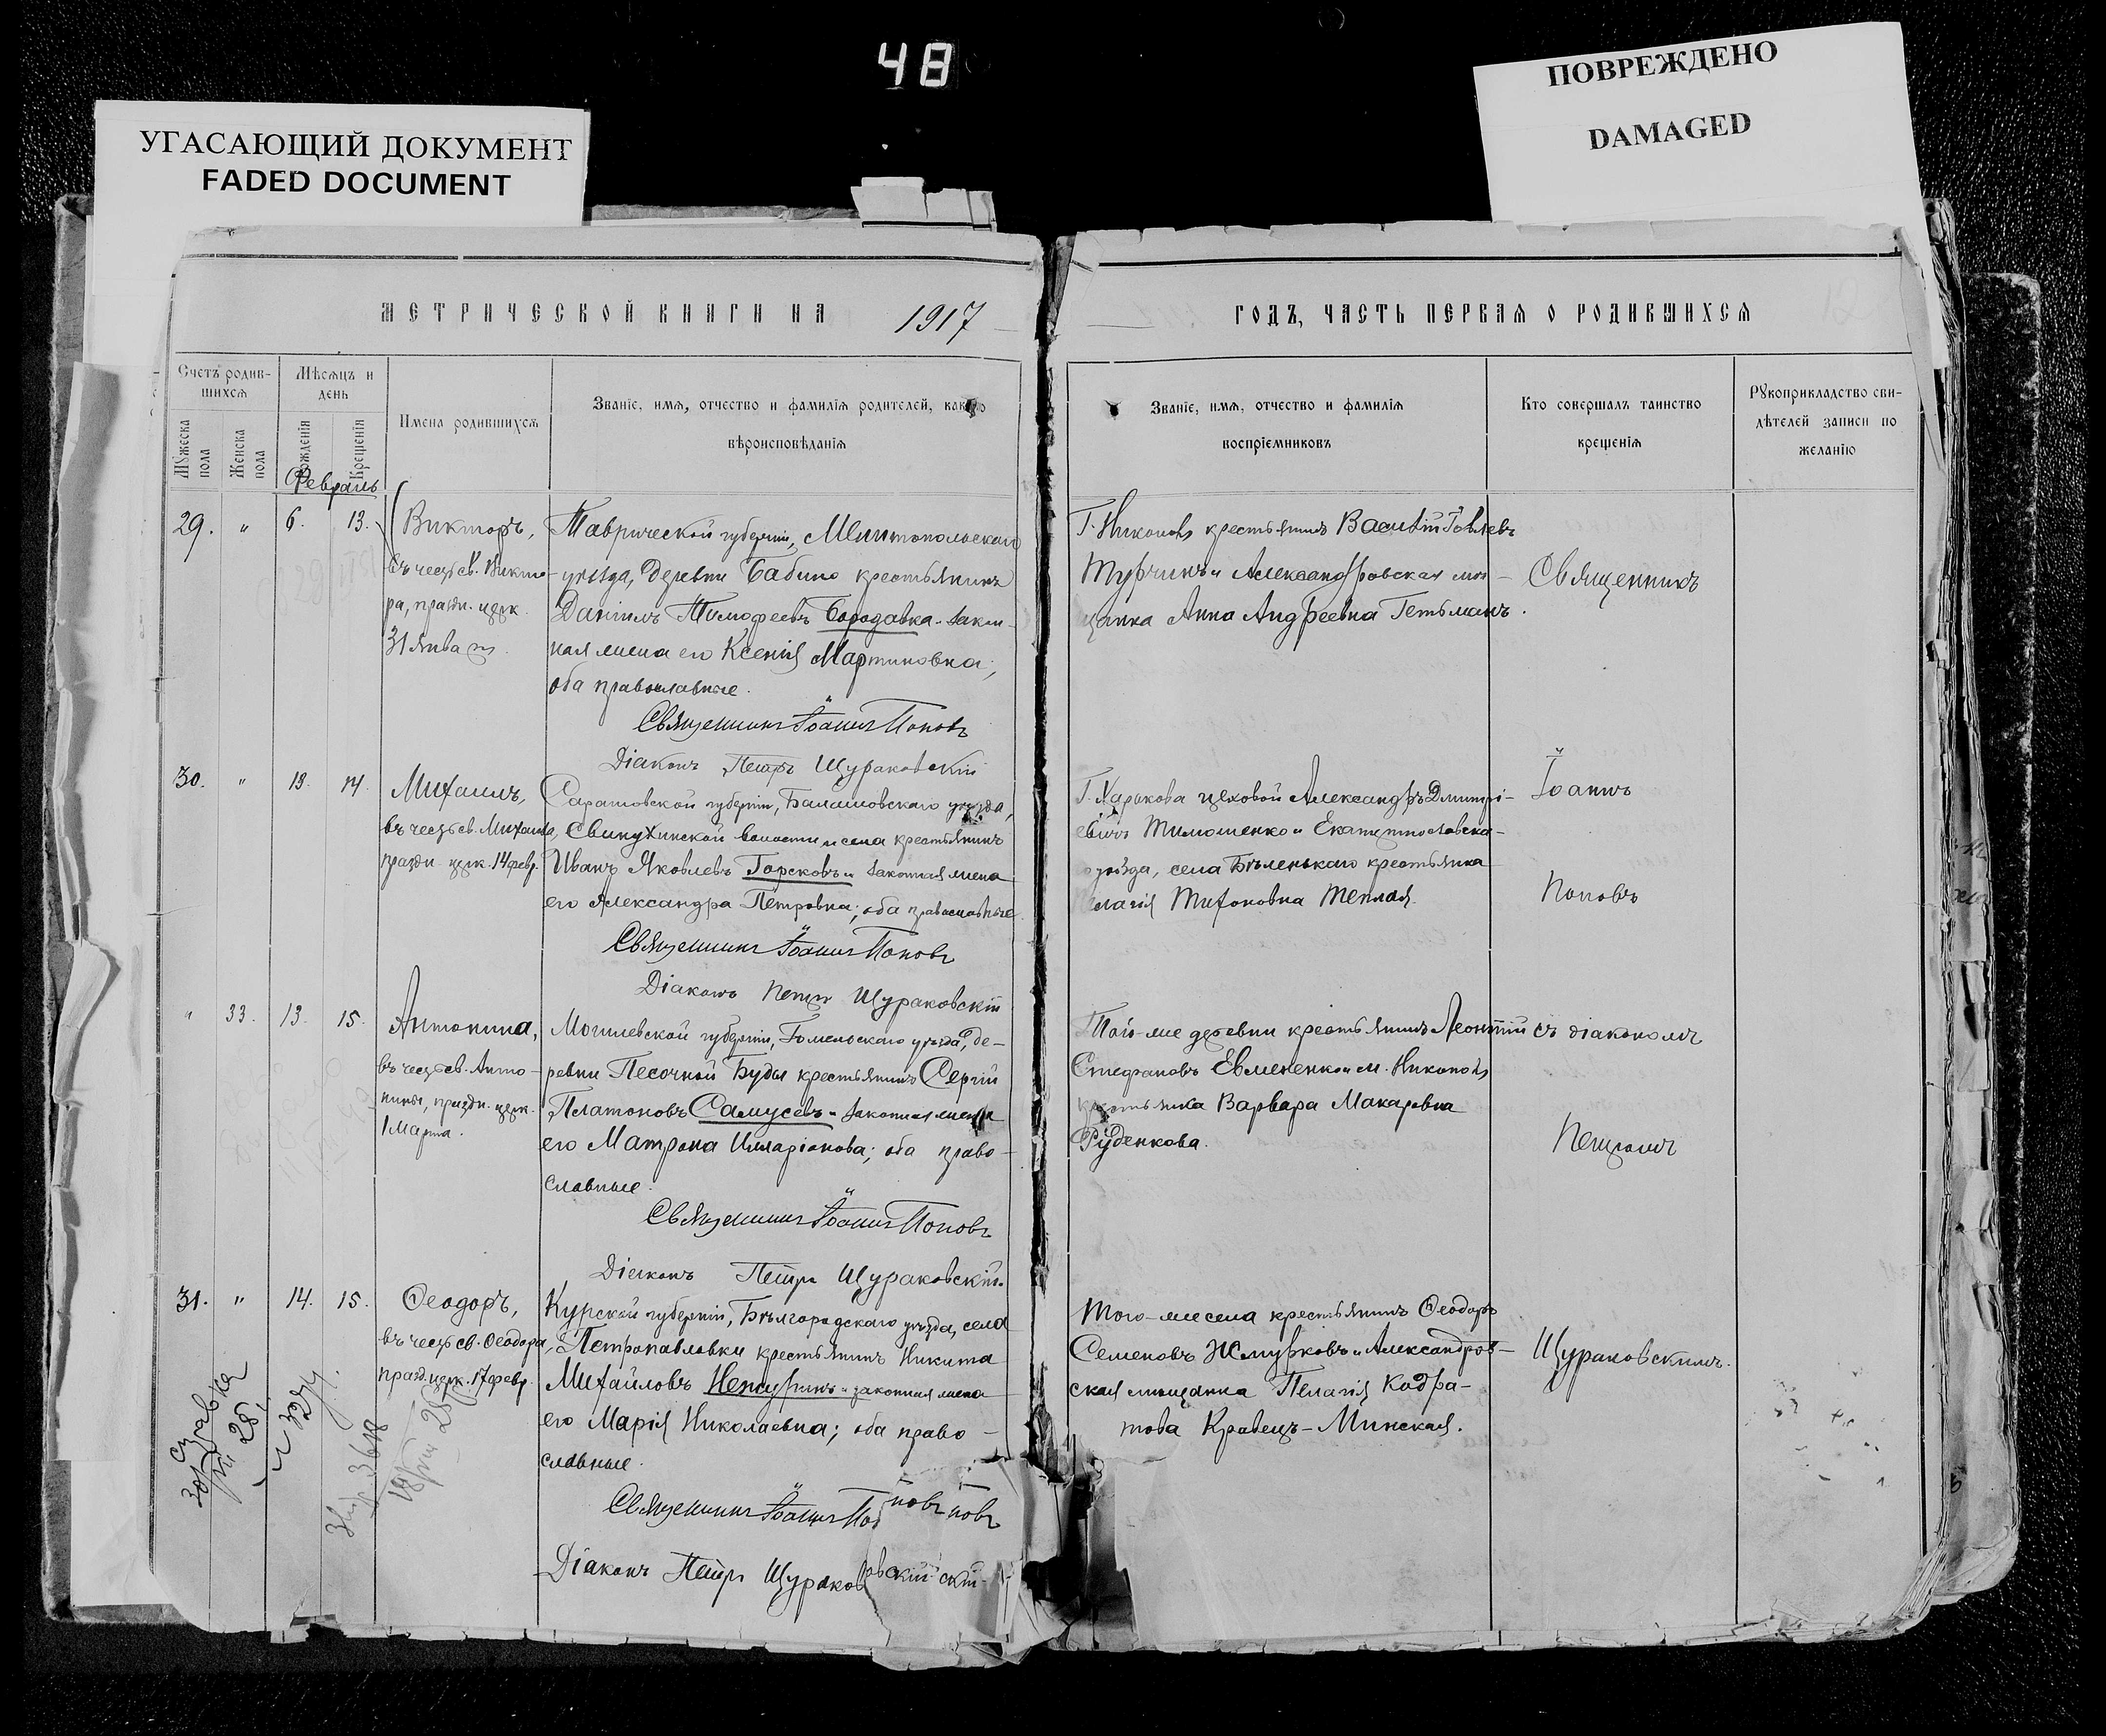 48
УГАСАЮЩИЙ ДОКУМЕНТ
FADED DOCUMENT
ПОВРЕЖДЕНО
DAMAGED
МЕТРИЧЕСКОЙ КНИГИ НА 1917
ГОДЪ, ЧАСТЬ ПЕРВАЯ О РОДИВШИХСЯ
Счетъ родив-
шихся
Мужеска пола
Женска пола
Мѣсяцъ и
день
Рожденія
Крещенія
Имена родившихся
Званіе, имя, отчество и фамилія родителей, какого
вѣроисповѣданія
Званіе, имя, отчество и фамилія
воспріемниковъ
Кто совершалъ таинство
крещенія
Рукоприкладство сви-
дѣтелей записи по
желанію
Февраль
29. " 6. 13.
Викторъ,
въ честь св. Викто-
ра, праздн. церк.
31 Января.
Таврической губерніи, Мелитопольскаго
уѣзда, деревни Бабино крестьянинъ
Даніилъ Тимофеевъ Бородавка и закон-
ная жена его Ксенія Мартиновна;
оба православные.
Священникъ Іоаннъ Поповъ
Діаконъ Петръ Щураковскій
Г. Никополя крестьянинъ Василій
Турчинъ и Александровская мѣ-
щанка Анна Андреевна Гетьманъ.
Священникъ
30. " 13. 14.
Михаилъ,
въ честь св. Михаила,
праздн. церк. 14 февр.
Саратовской губерніи, Балашовскаго уѣзда,
Свинухинской волости и села крестьянинъ
Иванъ Яковлевъ Горсковъ и законная жена
его Александра Петровна; оба православные.
Священникъ Іоаннъ Поповъ
Діаконъ Петръ Щураковскій
Г. Харькова цеховой Александръ Дмитрі-
евичъ Тимошенко и Екатеринославска-
го уѣзда, села Бѣленькаго крестьянка
Пелагія Тихоновна Теплая.
Іоаннъ
Поповъ
" 33. 13. 15.
Антонина,
въ честь св. Анто-
нины, праздн. церк.
1 Марта.
Могилевской губерніи, Гомельскаго уѣзда, де-
ревни Песочной Буды крестьянинъ Сергій
Платоновъ Самусевъ и законная жена
его Матрона Илларіонова; оба право-
славные.
Священникъ Іоаннъ Поповъ
Діаконъ Петръ Щураковскій.
Той-же деревни крестьянинъ Леонтій
Стефановъ Евмененко и м. Никополя
крестьянка Варвара Макаровна
Руденкова.
съ діакономъ
Петромъ
31. " 14. 15.
Ѳеодоръ,
въ честь св. Ѳеодора,
празд. церк. 17 февр.
Курской губерніи, Бѣлгородскаго уѣзда, села
Петропавловки крестьянинъ Никита
Михайловъ Нежуринъ и законная жена
его Марія Николаевна; оба право-
славные.
Священникъ Іоаннъ По повъ повъ
Діаконъ Петръ Щураков овскій скій.
Того-же села крестьянинъ Ѳеодоръ
Семеновъ Жмурковъ и Александров-
ская мѣщанка Пелагія Кодра-
това Кравецъ-Минская.
Щураковскимъ.
справка
№ 3274.
3618